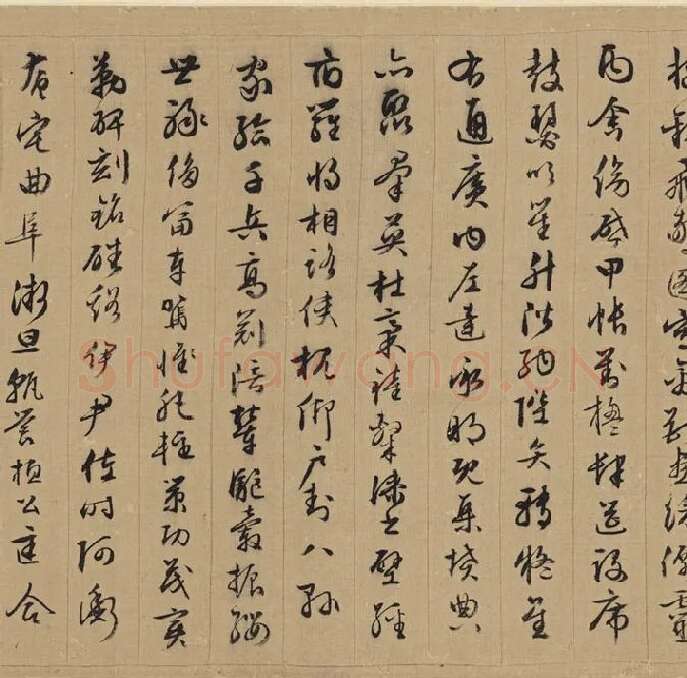 樓觀飛驚圖寫禽獸畫綵僊靈
丙舍傍啓甲帳對楹肆筵設席
鼓瑟吹笙升階納陛弁轉疑星
右通廣內左達承明既集墳典
亦聚群英杜稾鍾隸漆書壁經
府羅將相路俠槐卿戶封八縣
家給千兵高冠陪輦驅轂振纓
世祿侈富車駕肥輕策功茂實
勒碑刻銘磻溪伊尹佐時阿衡
奄宅曲阜微旦孰營桓公匡合
Shufawang.CN